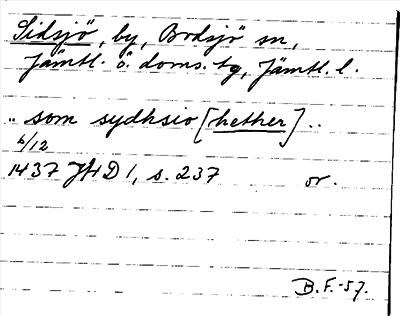 Sidsjö, by, Brdsjö sn,
Jämtl. ö. doms. tg, Jämtl. l.
" som sydhsio [hether] ..
6/12
1437 JHD 1, s. 237 or.
B.F.-57.